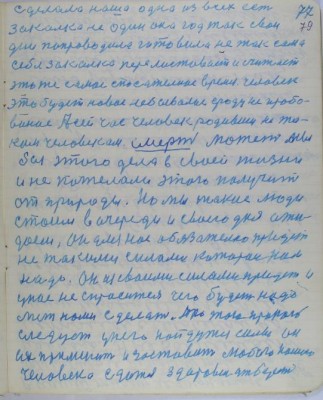 сделала наша одна из всех сет 77
закалка не один она год так свои 78
дни попроводила готовила не так сама
себя закалка перелистывает и считает
это же самое спасателное время человек
это будет новое небывалое
Асей час человек родивший не та
ким человеком смерт может дли
бы этого дела в своей жизни
и не пожелали этого получит
от природы. Но мы такие люди
стоим в очереди и своего дня ожи
даем, он для нас обязателно придет
не такими силами которая нам
надо. Он из своими силами придет и
у нас не спросится чего будет надо
нами сделат. Про этого
следует у него найдутся силы он
их применит и заставит любого
человека сдатся здоровия твердо